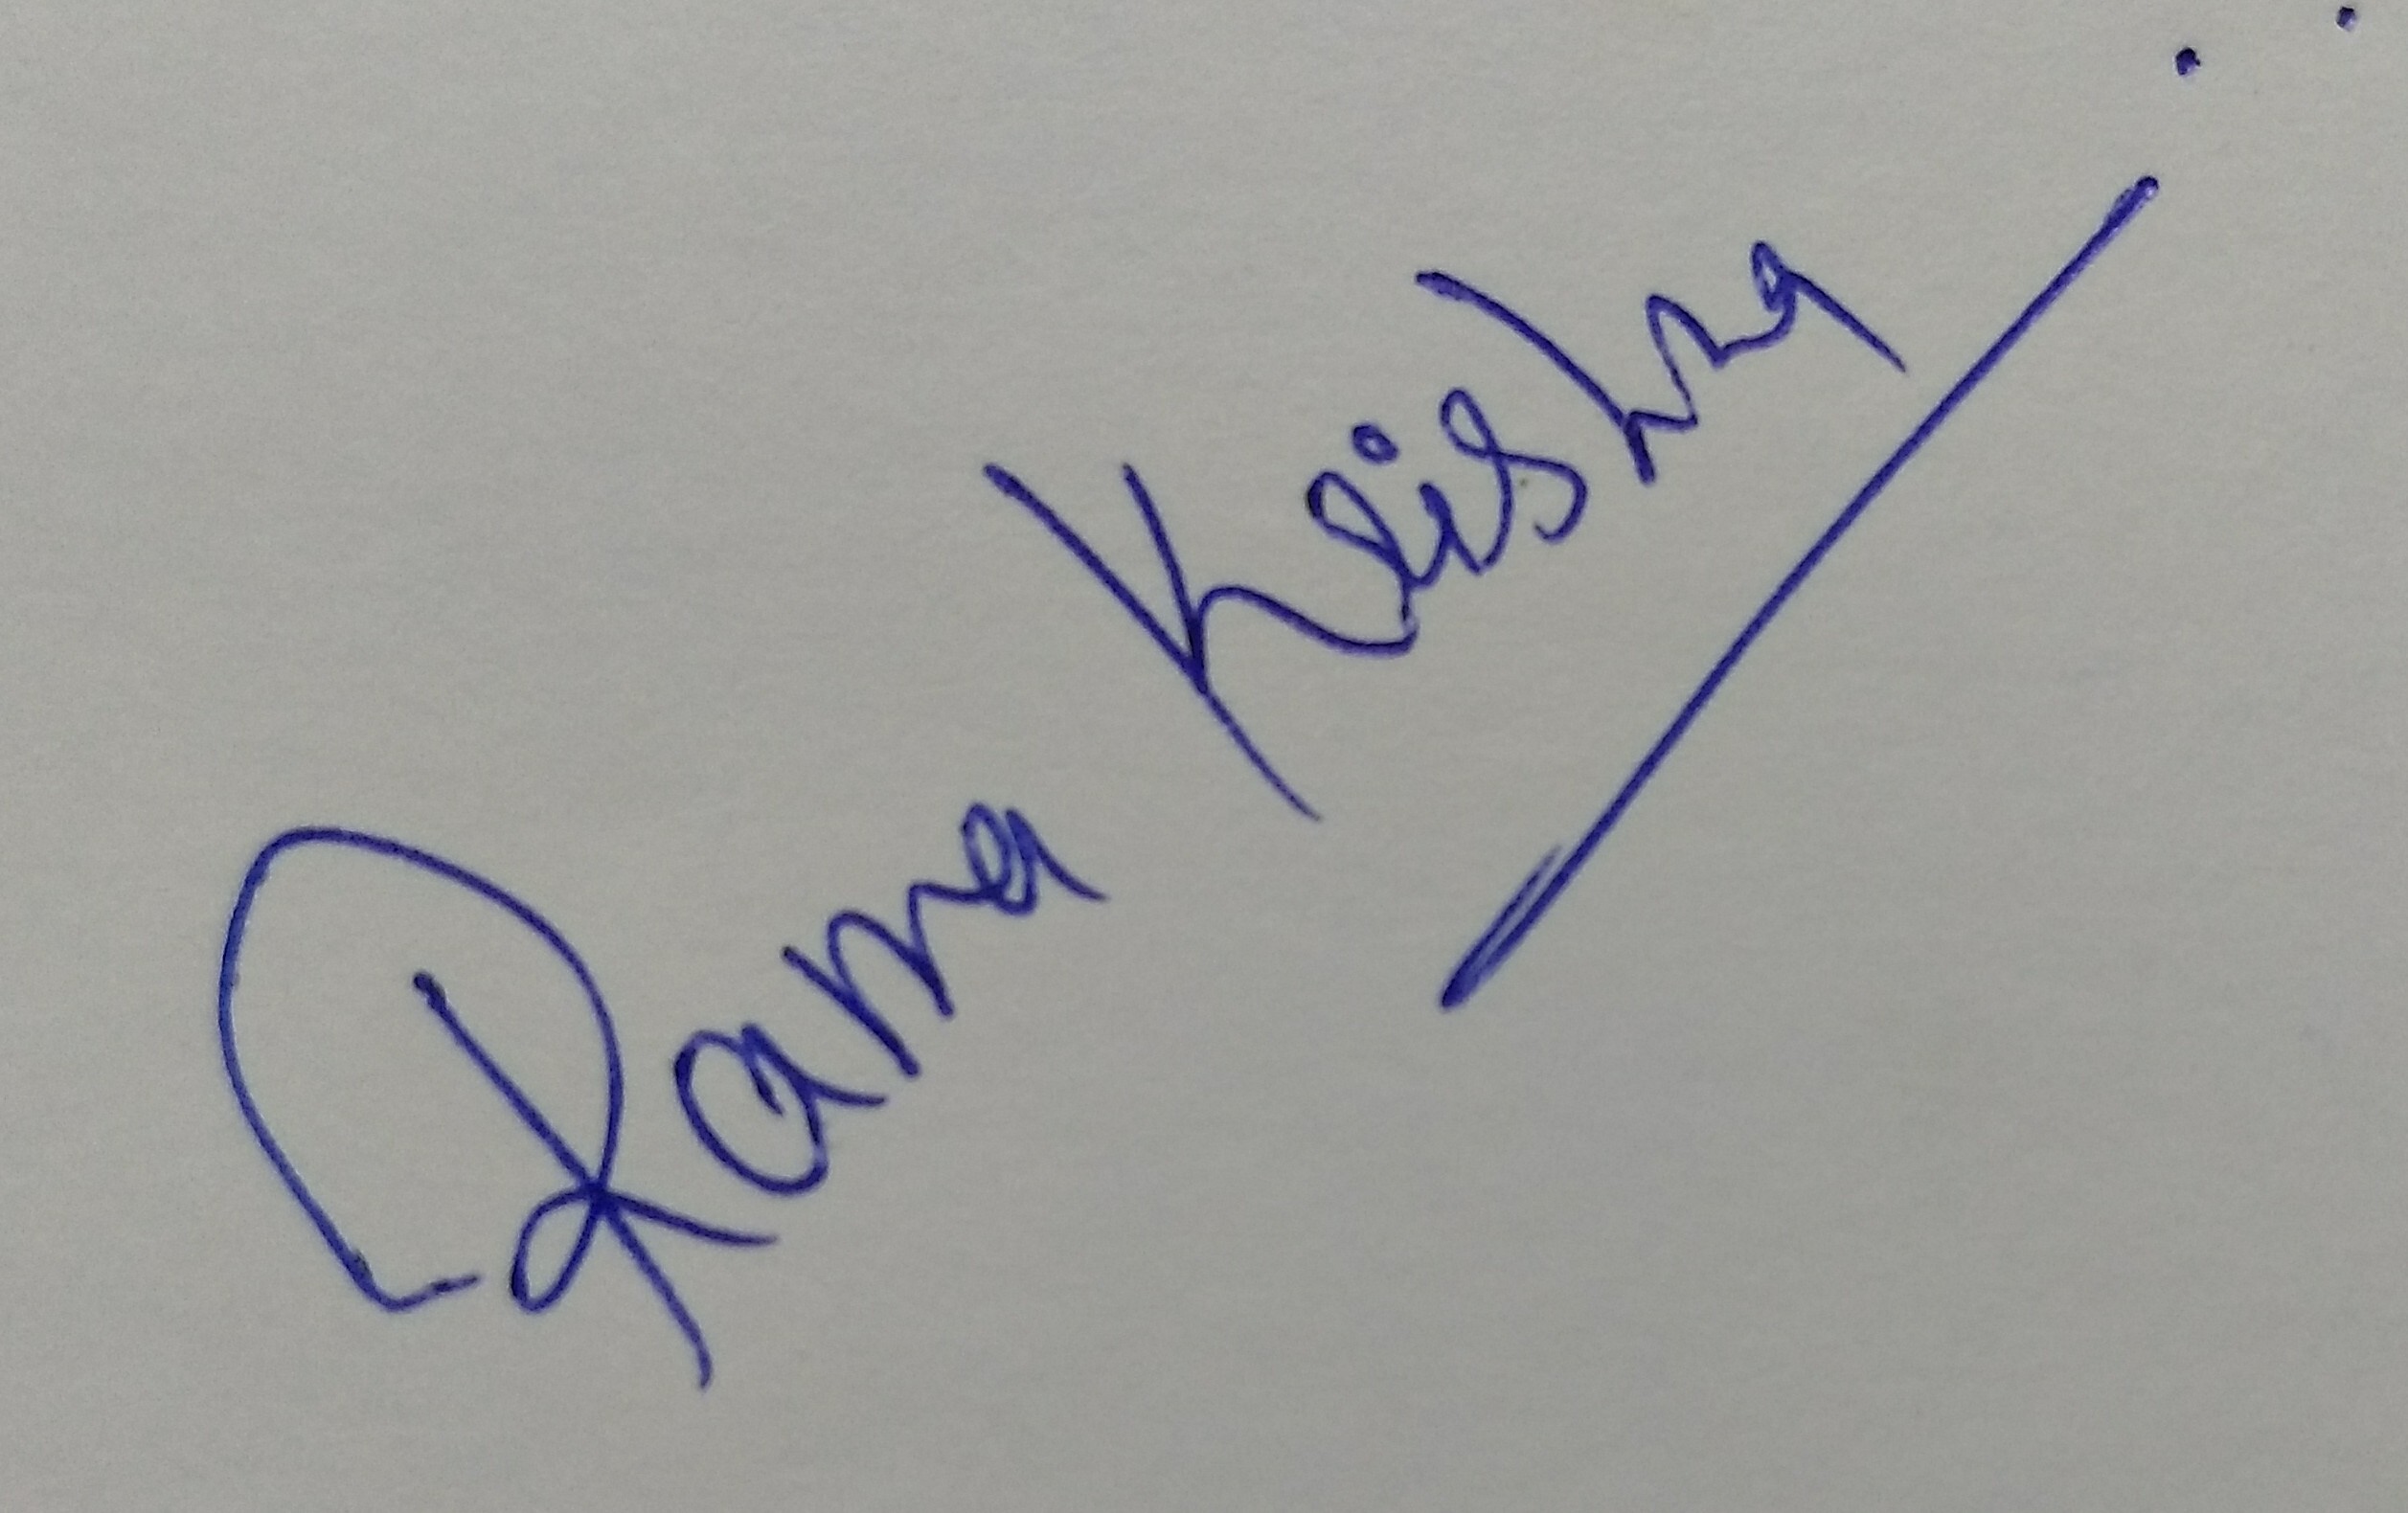 Rama Krishna